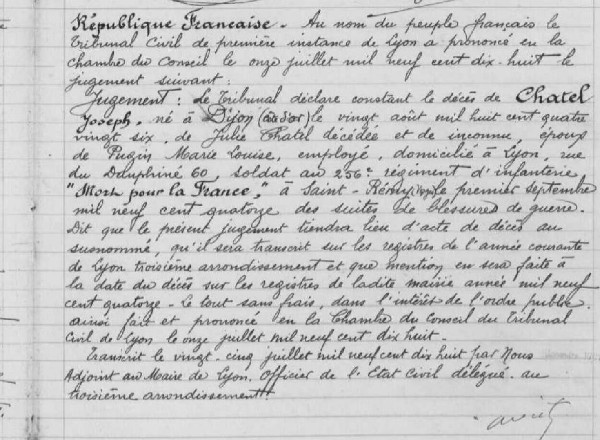 République Française. Au nom du peuple français le
Tribunal Civil de première instance de Lyon a prononcé en la
Chambre du Conseil le onze juillet mil neuf cent dix-huit le
jugement suivant:
Jugement: Le Tribunal déclare constant le décès de Chatel
Joseph, né à Dijon (Côte d'or) le vingt août mil huit cent quatre
vingt six, de Julie Chatel décédée et de inconnu, époux
de Pugin Marie Louise, employé, domicilié à Lyon, rue
du Dauphiné 60, soldat au 256e régiment d'infanterie
"Mort pour la France," à Saint-Rémy (Vosges) le premier septembre
mil neuf cent quatorze des suites de blessures de guerre.
Dit que le présent jugement tiendra lieu d'acte de décès au
susnommé, qu'il sera transcrit sur les registres de l'année courante
de Lyon troisième arrondissement et que mention en sera faite à
la date du décès sur les registres de ladite mairie année mil neuf
cent quatorze - Le tout sans frais, dans l'intérêt de l'ordre public.
ainsi fait et prononcé en la Chambre du Conseil du Tribunal
Civil de Lyon le onze juillet mil neuf cent dix huit.
Transcrit le vingt-cinq juillet mil neuf cent dix huit par Nous
Adjoint au Maire de Lyon, Officier de l'Etat Civil délégué au
troisième arrondissement.